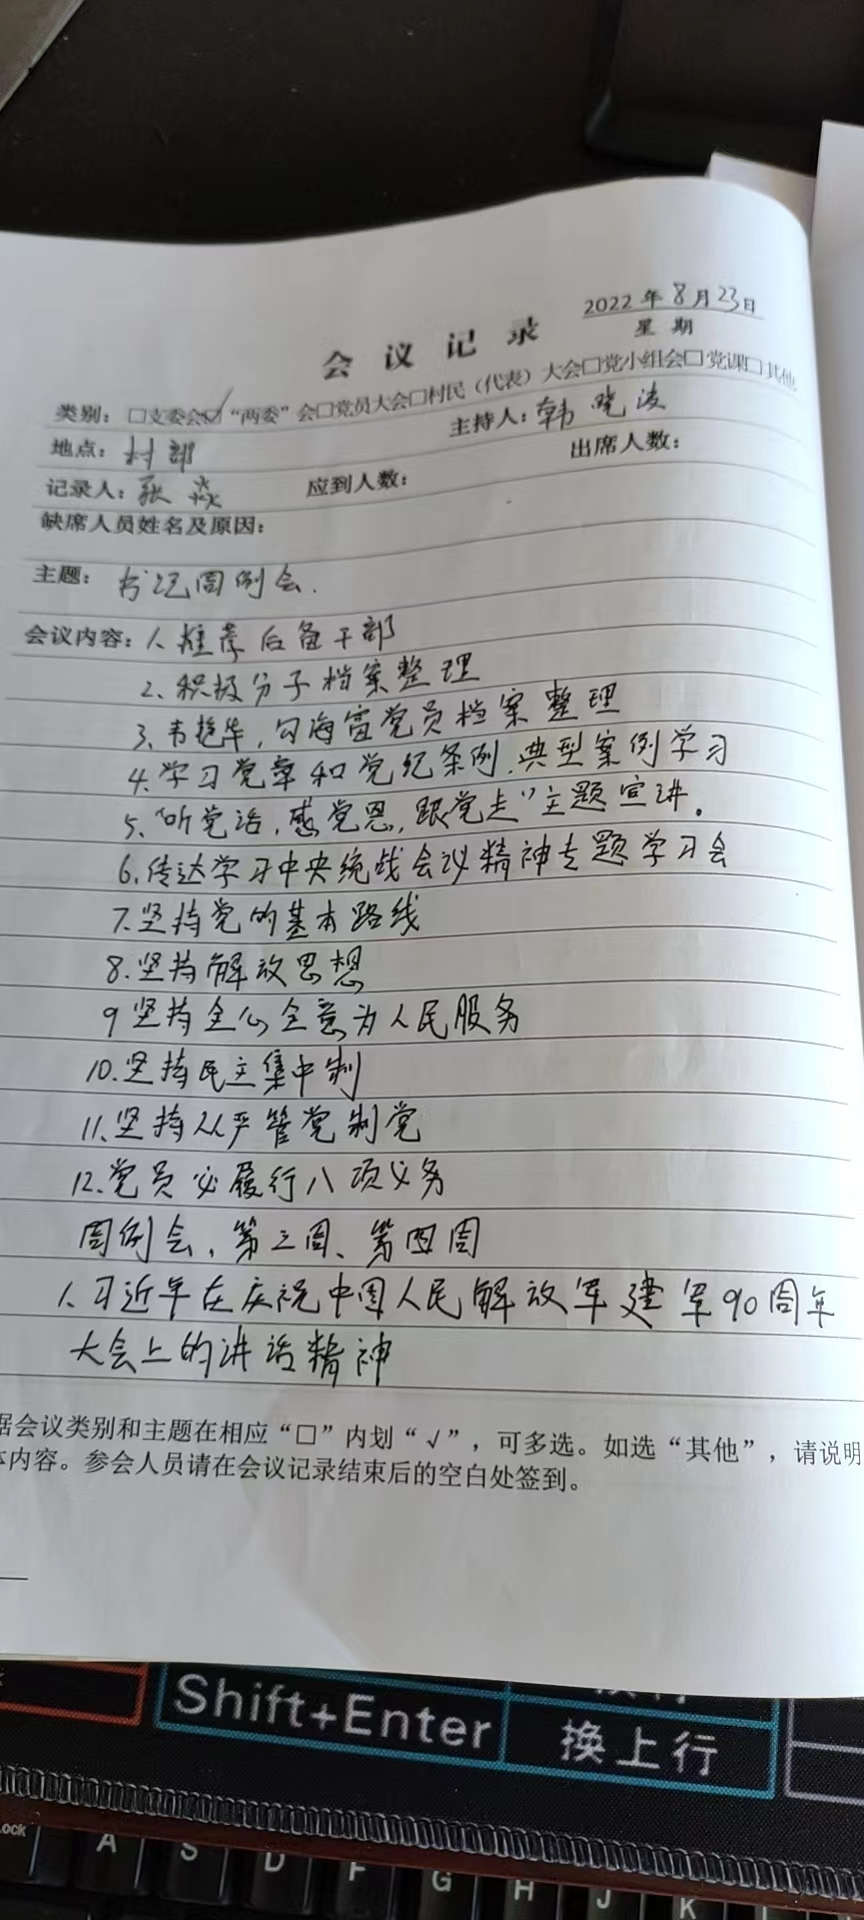 2022年8月23日
会议记录 星期
类别：□支委会☑“两委”会□党员大会□村民（代表）大会□党小组会□党课□其他
地点：村部 主持人：韩晓波
记录人：张淼 应到人数： 出席人数：
缺席人员姓名及原因：
主题：书记周例会.
会议内容：1、推荐后备干部
2、积极分子档案整理
3、韦艳华，勾海富党员档案整理
4、学习党章和党纪条例、典型案例学习
5、“听党话，感党恩，跟党走”主题宣讲。
6、传达学习中央统战会议精神专题学习会
7、坚持党的基本路线
8.坚持解放思想
9坚持全心全意为人民服务
10.坚持民主集中制
11、坚持从严管党制党
12、党员必履行八项义务
周例会、第三周、第四周
1、习近平在庆祝中国人民解放军建军90周年
大会上的讲话精神
据会议类别和主题在相应“□”内划“√”，可多选。如选“其他”，请说明
体内容。参会人员请在会议记录结束后的空白处签到。
Shift+Enter 换上行
Lock A S D F G H J K